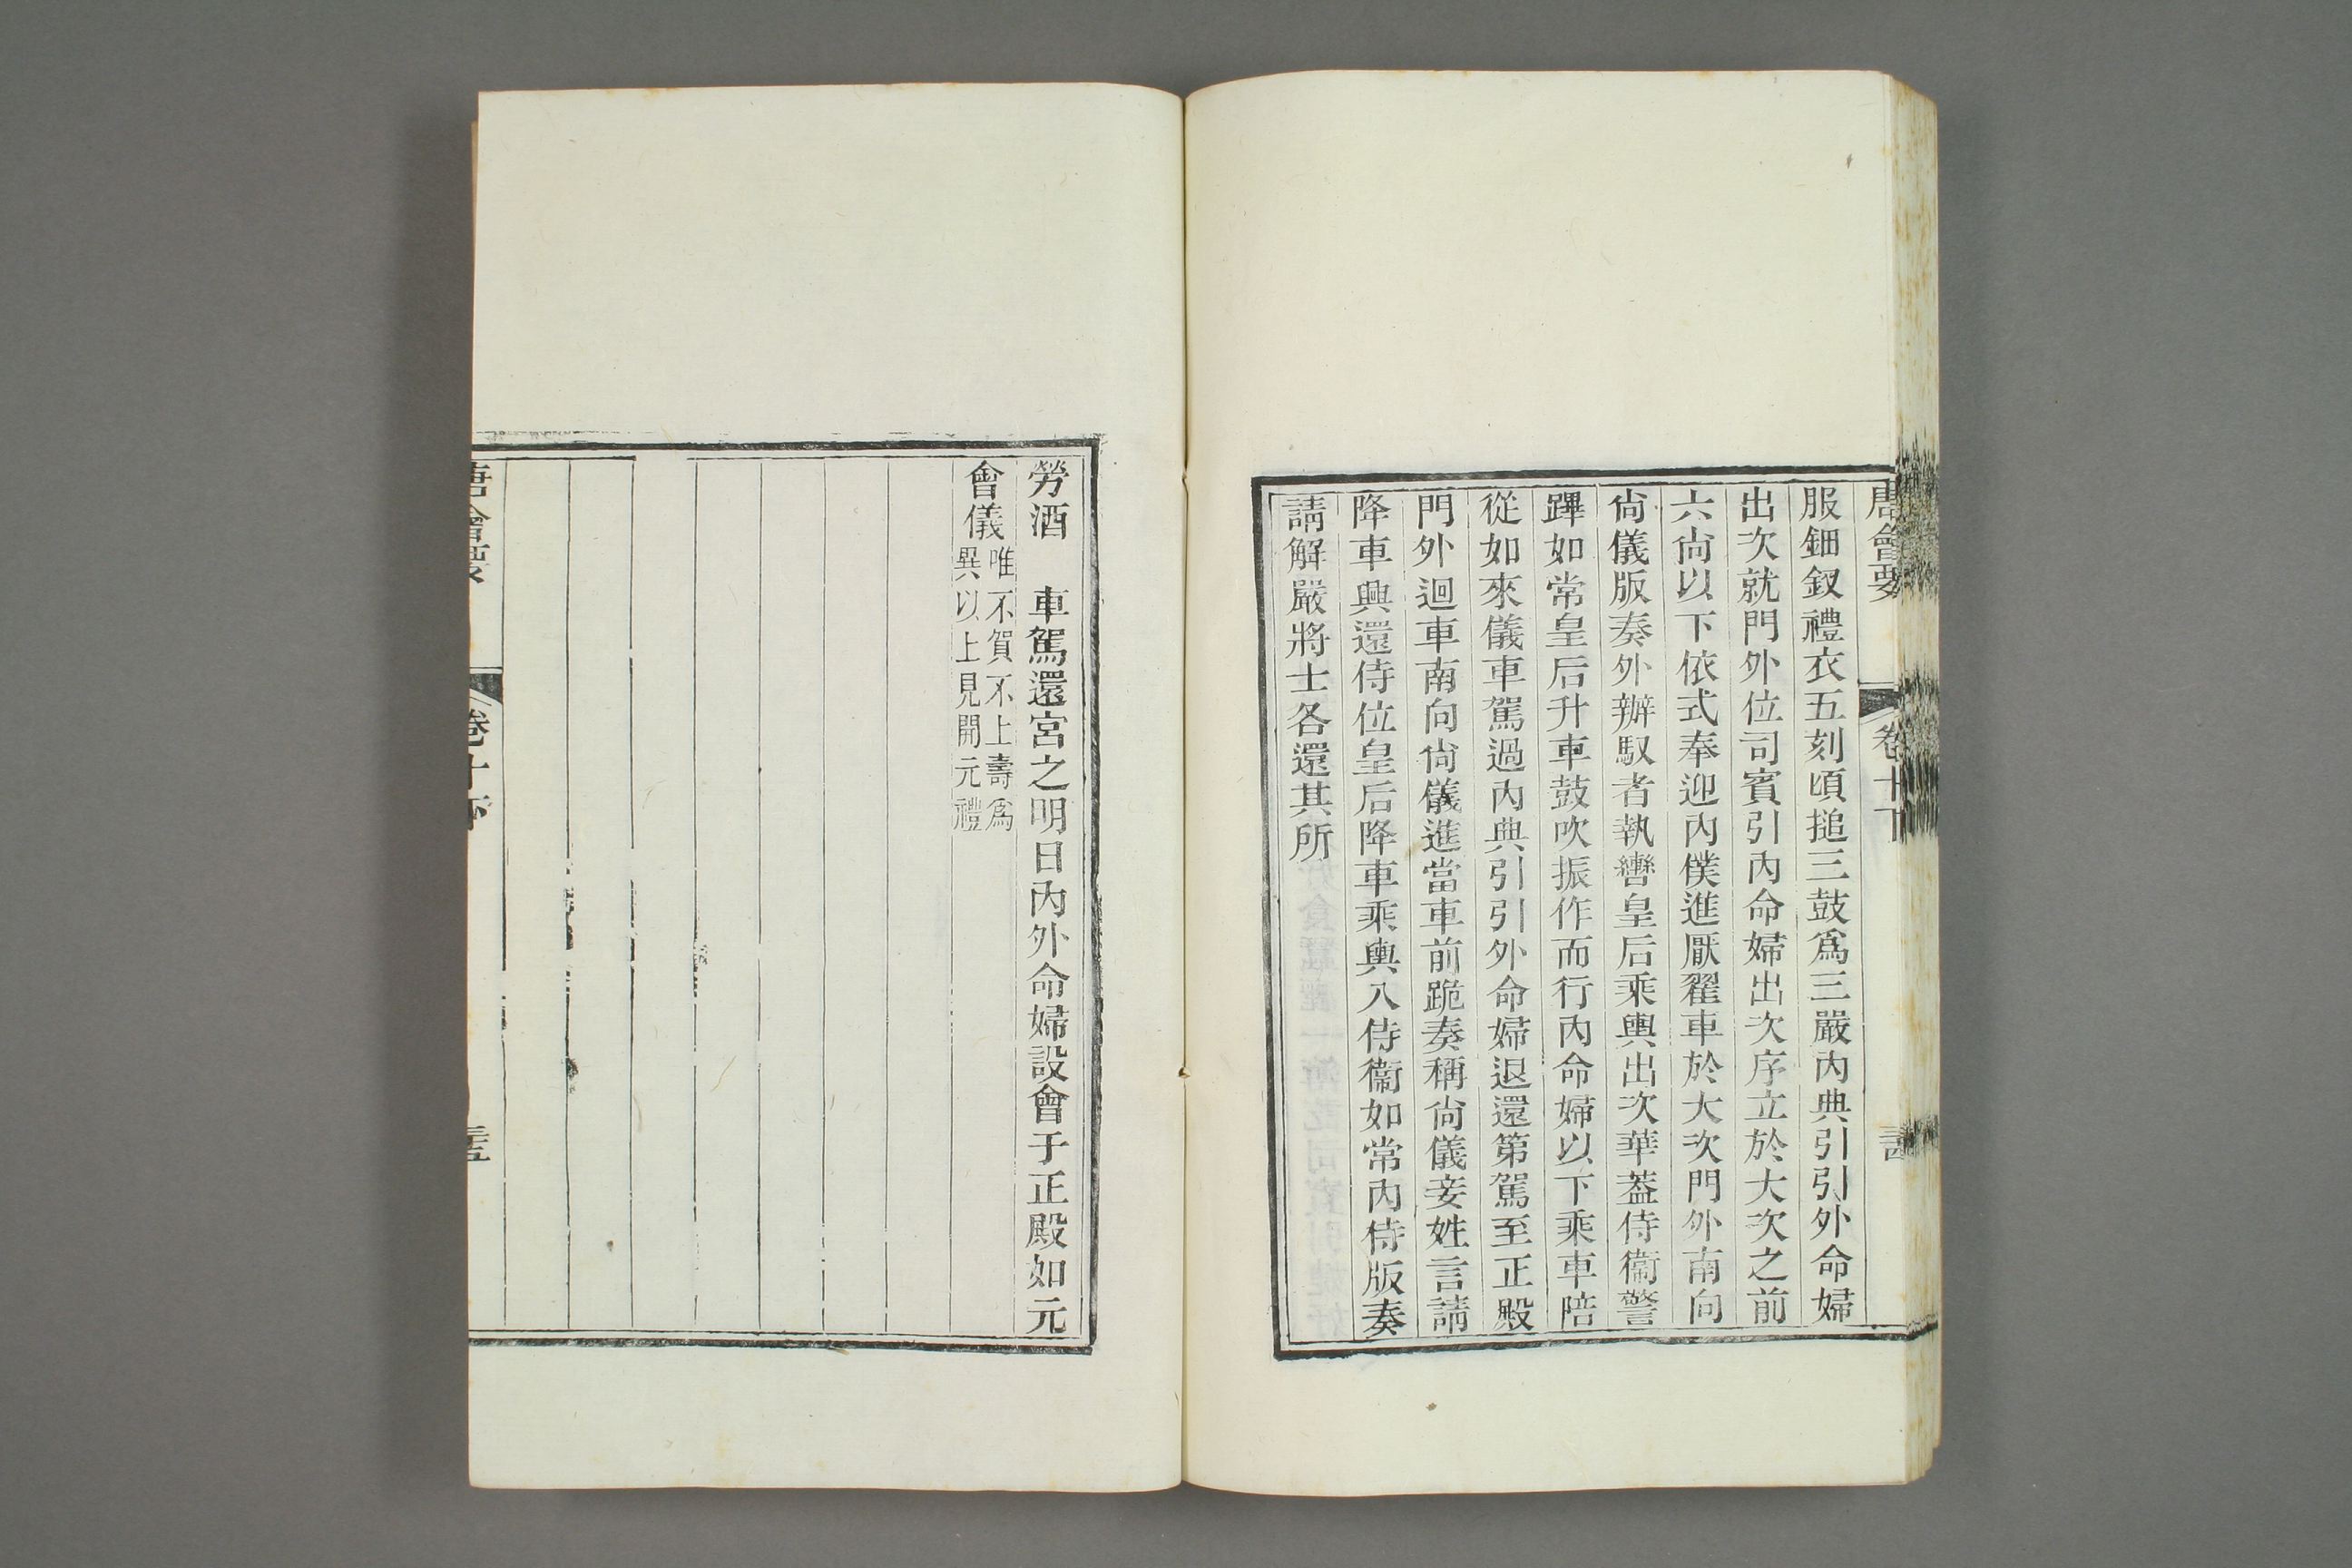 唐會要 卷十下
服鈿釵禮衣五刻頃搥三鼓爲三嚴內典引引外命婦
出次就門外位司賓引內命婦出次序立於大次之前
六尙以下依式奉迎內僕進厭翟車於大次門外南向
尙儀版奏外辦馭者執轡皇后乘輿出次華葢侍衞警
蹕如常皇后升車鼓吹振作而行內命婦以下乘車陪
從如來儀車駕過內典引引外命婦退還第駕至正殿
門外迴車南向尙儀進當車前跪奏稱尙儀妾姓言請
降車興還侍位皇后降車乘輿入侍衞如常內侍版奏
請解嚴將士各還其所
勞酒　車駕還宮之明日內外命婦設會于正殿如元
會儀唯不賀不上壽爲
異以上見開元禮
唐會要 卷十下